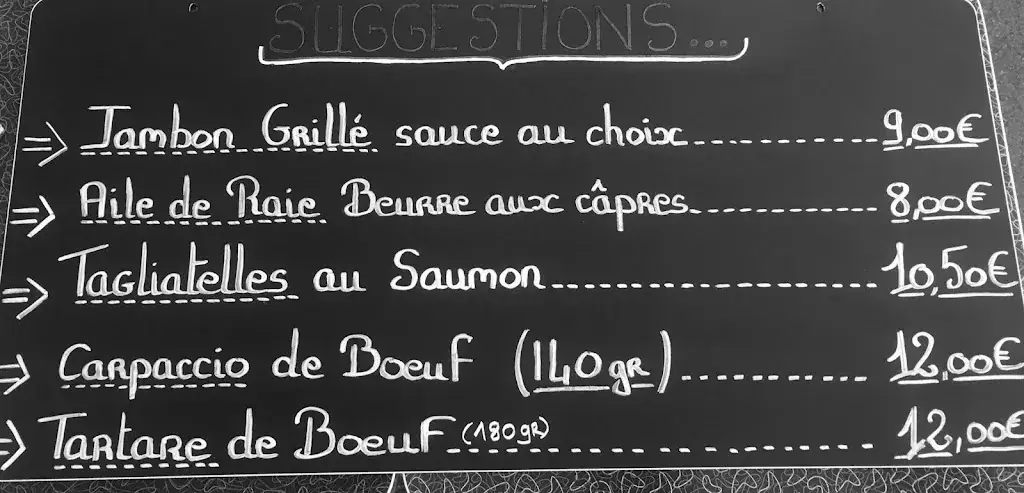 SUGGESTIONS...
⇒ Jambon Grillé sauce au choix............ 9,00€
⇒ Aile de Raie Beurre aux câpres............ 8,00€
⇒ Tagliatelles au Saumon.................... 10,50€
⇒ Carpaccio de Boeuf (140gr)............ 12,00€
⇒ Tartare de Boeuf (180gr)................ 12,00€